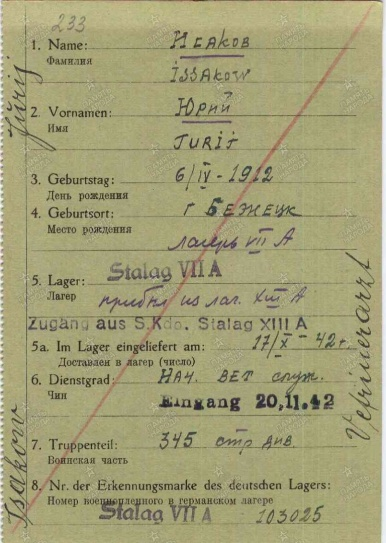 233
1. Name: Исаков
Фамилия
Issakow
2. Vornamen: Юрий
Имя
Jurij
3. Geburtstag: 6/IV-1912
День рождения
4. Geburtsort: г Бежецк
Место рождения
лагерь VII A
5. Lager: Stalag VII A
Лагер прибыл из лаг. XIII A
Zugang aus S.Kdo. Stalag XIII A
5a. Im Lager eingeliefert am: 17/X-42г.
Доставлен в лагер (число)
6. Dienstgrad: Нач. вет служ.
Чин
Eingang 20.11.42
7. Truppenteil: 345 стр див.
Воинская часть
8. Nr. der Erkennungsmarke des deutschen Lagers:
Номер военнопленного в германском лагере
Stalag VII A 103025
Jurij
Isakow
Veterinärarzt